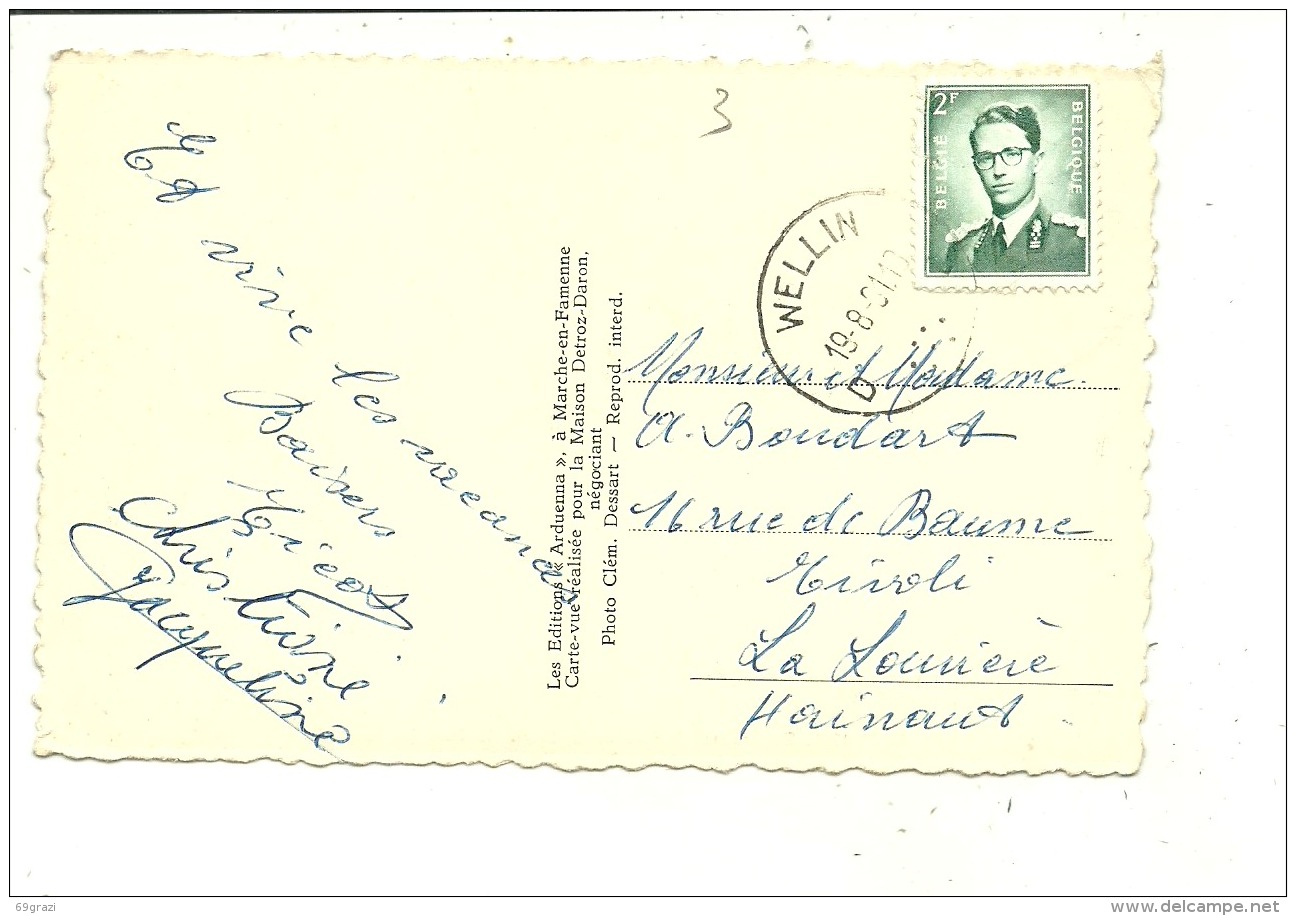 3
2F
BELGIË
BELGIQUE
WELLIN
19-8-61
D
Et vive les vacances
Baisers
Christiane
Jacqueline
Les Editions « Arduenna », à Marche-en-Famenne
Carte-vue réalisée pour la Maison Detroz-Daron,
négociant
Photo Clém. Dessart — Reprod. interd.
Monsieur et Madame
A. Boudart
16 rue de Baume
Tivoli
La Louvière
Hainaut
69grazi
delcampe.net